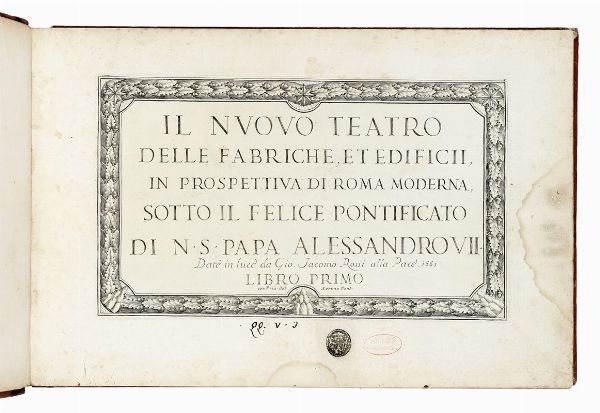 IL NVOVO TEATRO
DELLE FABRICHE, ET EDIFICII,
IN PROSPETTIVA DI ROMA MODERNA,
SOTTO IL FELICE PONTIFICATO
DI N·S·PAPA ALESSANDRO VII·
Date in luce da Gio. Iacomo alla Pace.
LIBRO PRIMO
V · 3